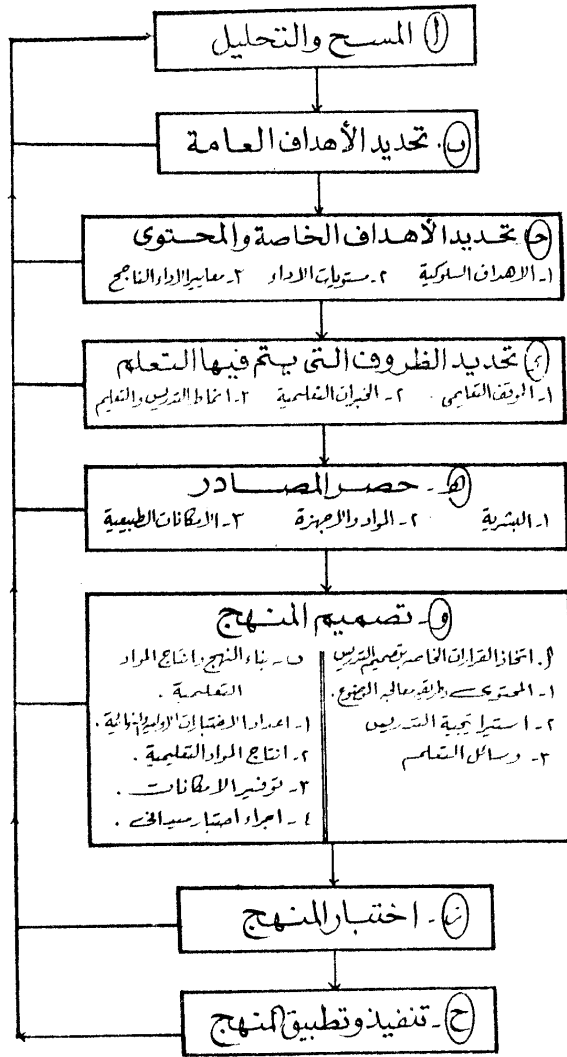 أ المسح والتحليل
ب. تحديد الأهداف العامة
جـ تحديد الأهداف الخاصة والمحتوى
١- الاهداف السلوكية ٢- مستويات الاداء ٣- معايير الاداء الناجح
د تحديد الظروف التى يتم فيها التعلم
١- الموقف التعليمى . ٢- الخبرات التعليمية ٣- انماط التدريس والتعليم
هـ - حصر المصادر
١- البشرية ٢- المواد والاجهزة ٣- الامكانات الطبيعية
و - تصميم المنهج
أ. اتخاذ القرارات الخاصه بتصميم التدريس
١- المحتوى وطريقة معالجة الموضوع.
٢- استراتيجية التدريس
٣- وسائل التعلم
ب - بناء المنهج وانتاج المواد
التعليمية .
١- اعداد الاختبارات الأولية والنهائية.
٢- انتاج المواد التعليمية .
٣- توفير الامكانات .
٤- اجراء اختبار ميدانى .
ز - اختبار المنهج
ح - تنفيذ وتطبيق المنهج